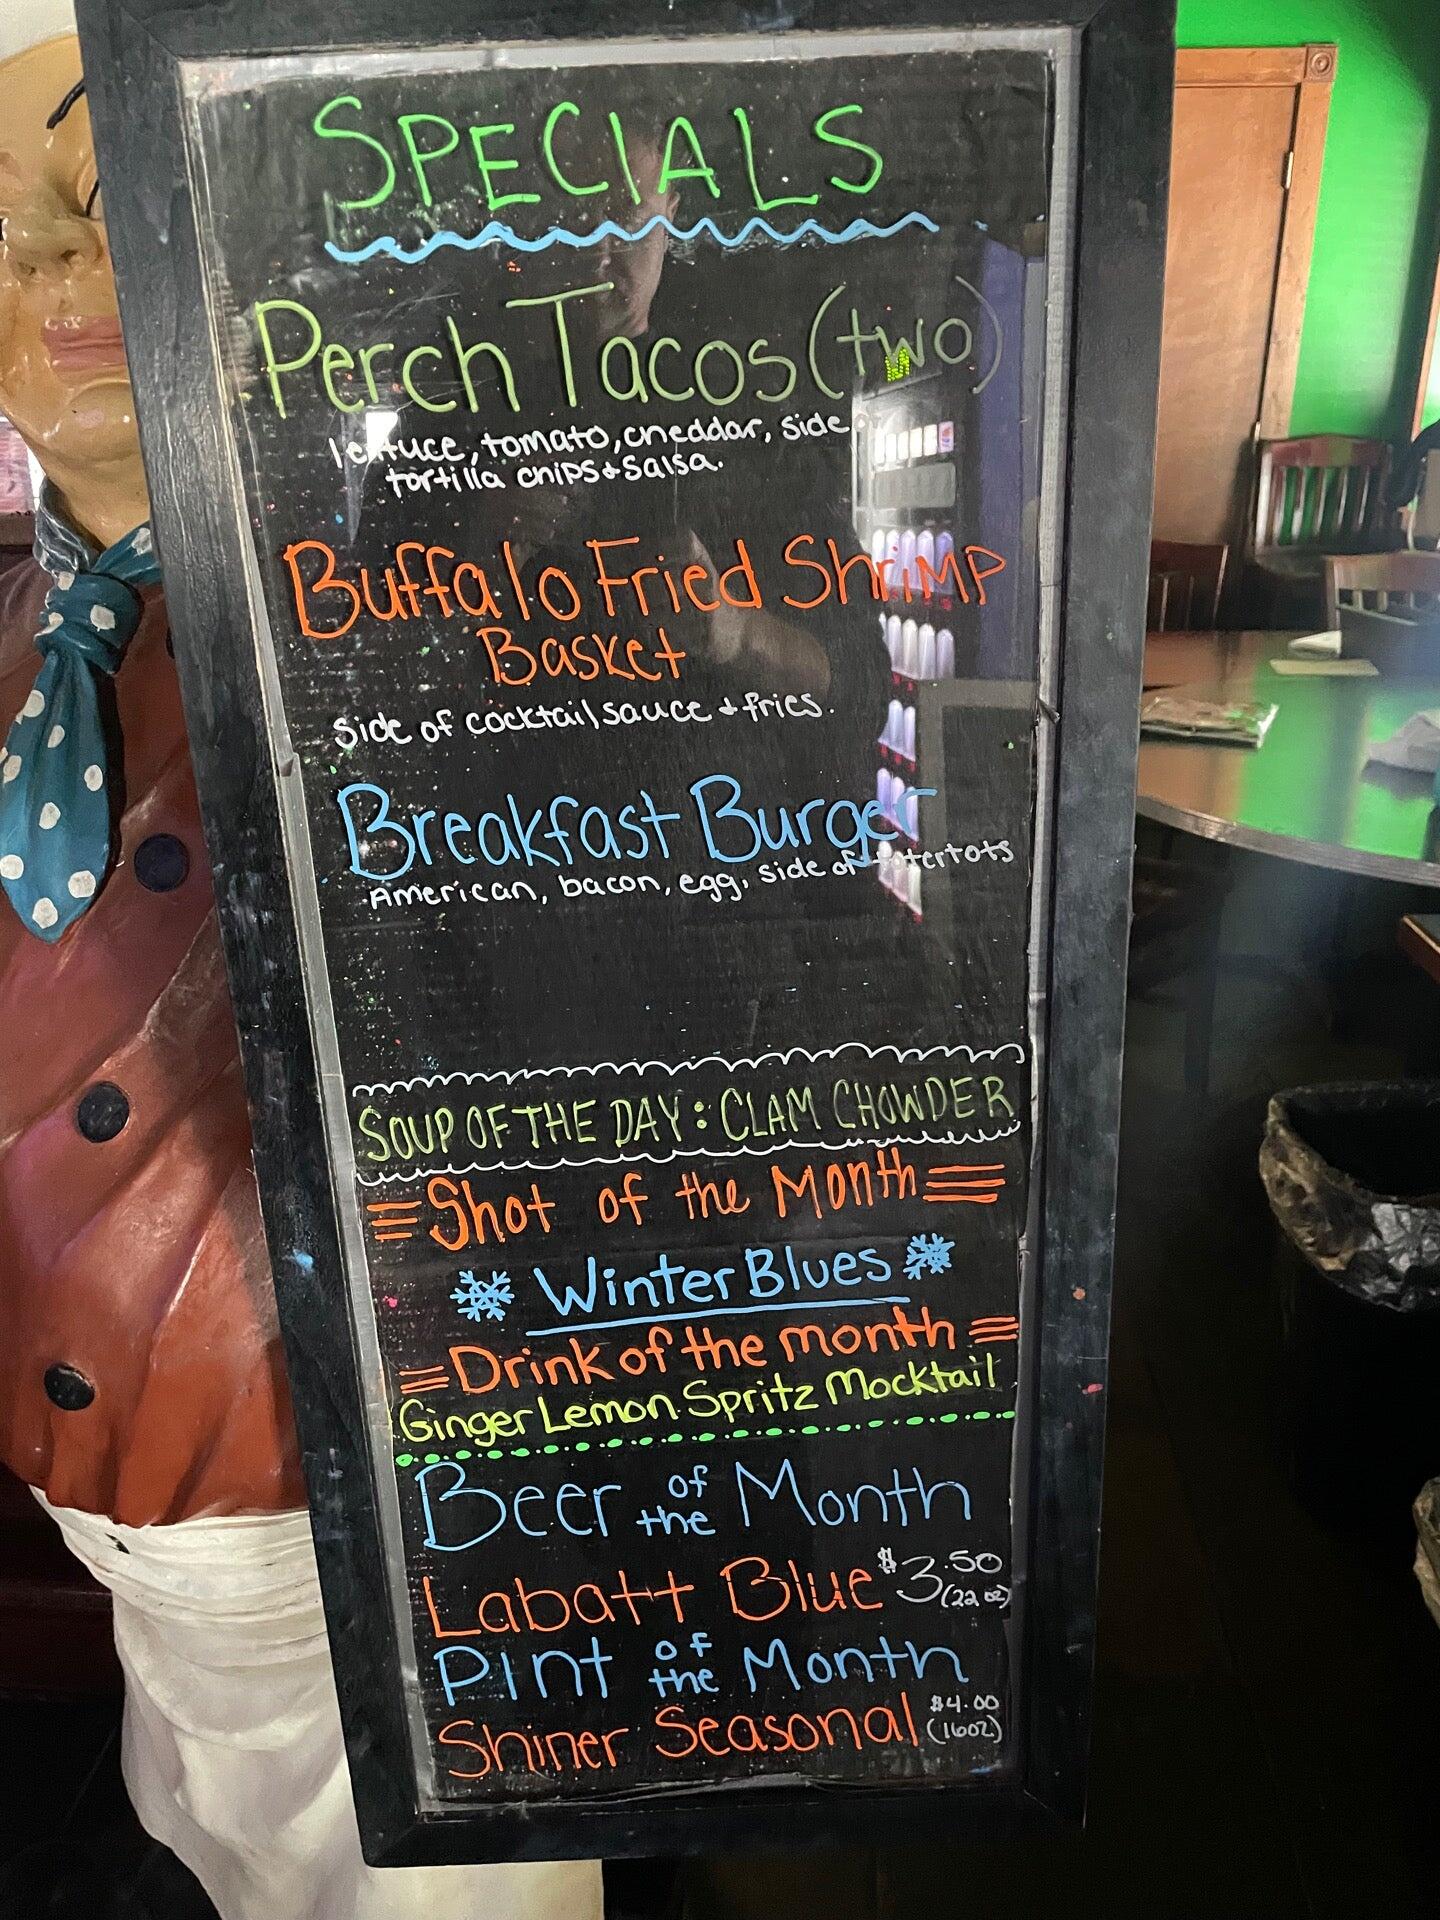 SPECIALS
Perch Tacos (two)
lettuce, tomato, cheddar, side
tortilla chips & salsa.
Buffalo Fried Shrimp
Basket
side of cocktail sauce & fries.
Breakfast Burger
American, bacon, egg, side of tatertots
SOUP OF THE DAY: CLAM CHOWDER
Shot of the Month
Winter Blues
Drink of the month
Ginger Lemon Spritz Mocktail
Beer of the Month
Labatt Blue $3.50 (22 oz)
Pint of the Month
Shiner Seasonal $4.00 (16oz)